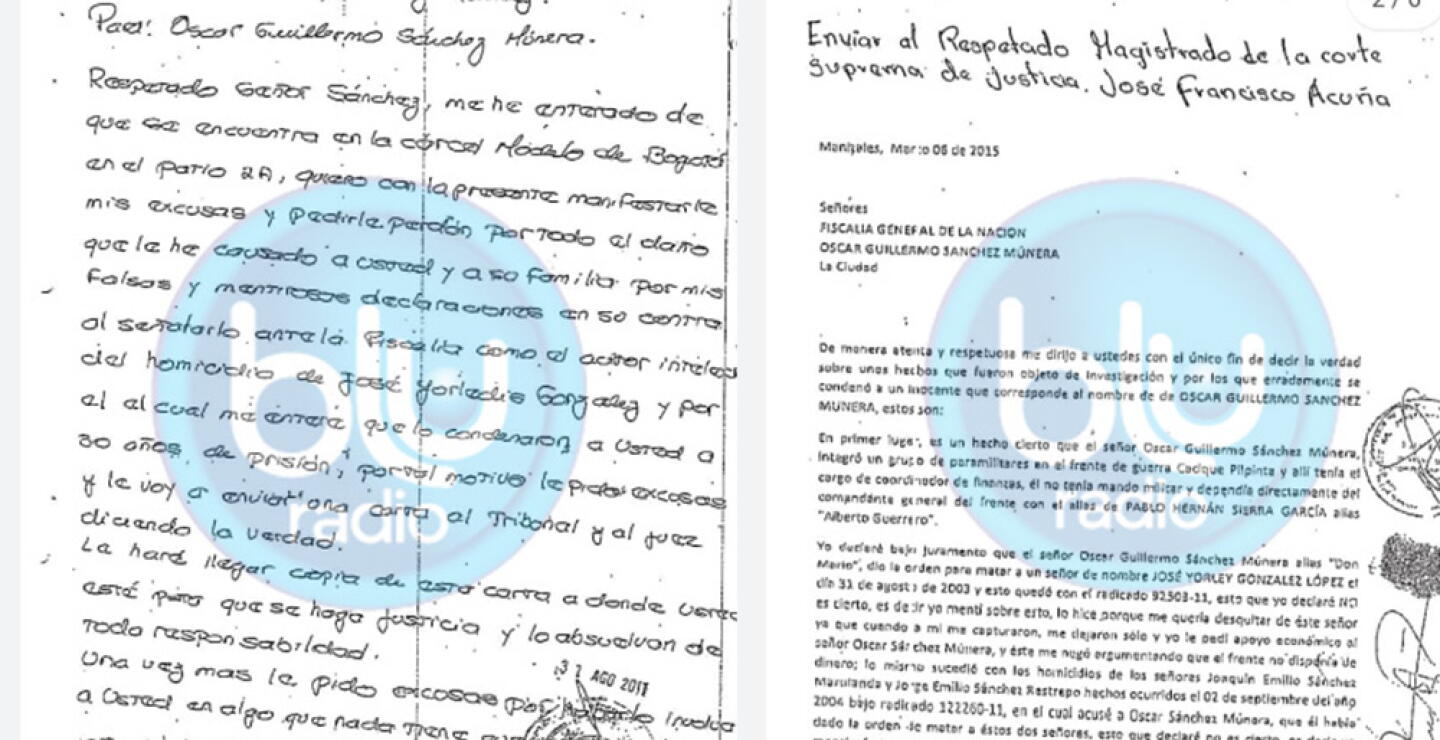 Para: Oscar Guillermo Sánchez Múnera.
Respetado Señor Sánchez, me he enterado de
que se encuentra en la cárcel Modelo de Bogotá
en el patio 2A, quiero con la presente manifestarle
mis excusas y pedirle perdón por todo el daño
que le he causado a usted y a su familia por mis
falsas y mentirosas declaraciones en su contra
al señalarlo ante la Fiscalía como el autor intelec
del homicidio de José Yorladis Gonzalez y por
el al cual me enteré que lo condenaron a Usted a
30 años de prisión, por tal motivo le pido excusas
y le voy a enviar una carta al Tribunal y al juez
diciendo la verdad.
La haré llegar copia de esta carta a donde usted
esté para que se haga Justicia y lo absuelvan de
toda responsabilidad.
Una vez mas le pido excusas por haberlo involu
a Usted en algo que nada tiene
31 AGO 2011
blu
radio
Enviar al Respetado Magistrado de la corte
suprema de justicia. José Francisco Acuña
Manizales, Marzo 06 de 2015
Señores
FISCALIA GENERAL DE LA NACION
OSCAR GUILLERMO SANCHEZ MÚNERA
La Ciudad
De manera atenta y respetuosa me dirijo a ustedes con el único fin de decir la verdad
sobre unos hechos que fueron objeto de investigación y por los que erradamente se
condenó a un inocente que corresponde al nombre de de OSCAR GUILLERMO SANCHEZ
MUNERA, estos son:
En primer lugar, es un hecho cierto que el señor Oscar Guillermo Sánchez Múnera,
integró un grupo de paramilitares en el frente de guerra Cacique Pipinta y allí tenía el
cargo de coordinador de finanzas, él no tenía mando militar y dependía directamente del
comandante general del frente con el alias de PABLO HERNÁN SIERRA GARCÍA alias
"Alberto Guerrero".
Yo declaré bajo juramento que el señor Oscar Guillermo Sánchez Múnera alias "Don
Mario", dio la orden para matar a un señor de nombre JOSÉ YORLEY GONZALEZ LÓPEZ el
día 31 de agosto de 2003 y esto quedó con el radicado 92503-11, esto que yo declaré NO
es cierto, es decir yo mentí sobre esto, lo hice porque me quería desquitar de éste señor
ya que cuando a mi me capturaron, me dejaron sólo y yo le pedí apoyo económico al
señor Oscar Sánchez Múnera, y éste me negó argumentando que el frente no disponía de
dinero; lo mismo sucedió con los homicidios de los señores Joaquín Emilio Sánchez
Marulanda y Jorge Emilio Sánchez Restrepo hechos ocurridos el 02 de septiembre del año
2004 bajo radicado 122260-11, en el cual acusé a Oscar Sánchez Múnera, que él había
dado la orden de matar a éstos dos señores, esto que declaré no es cierto,
blu
radio